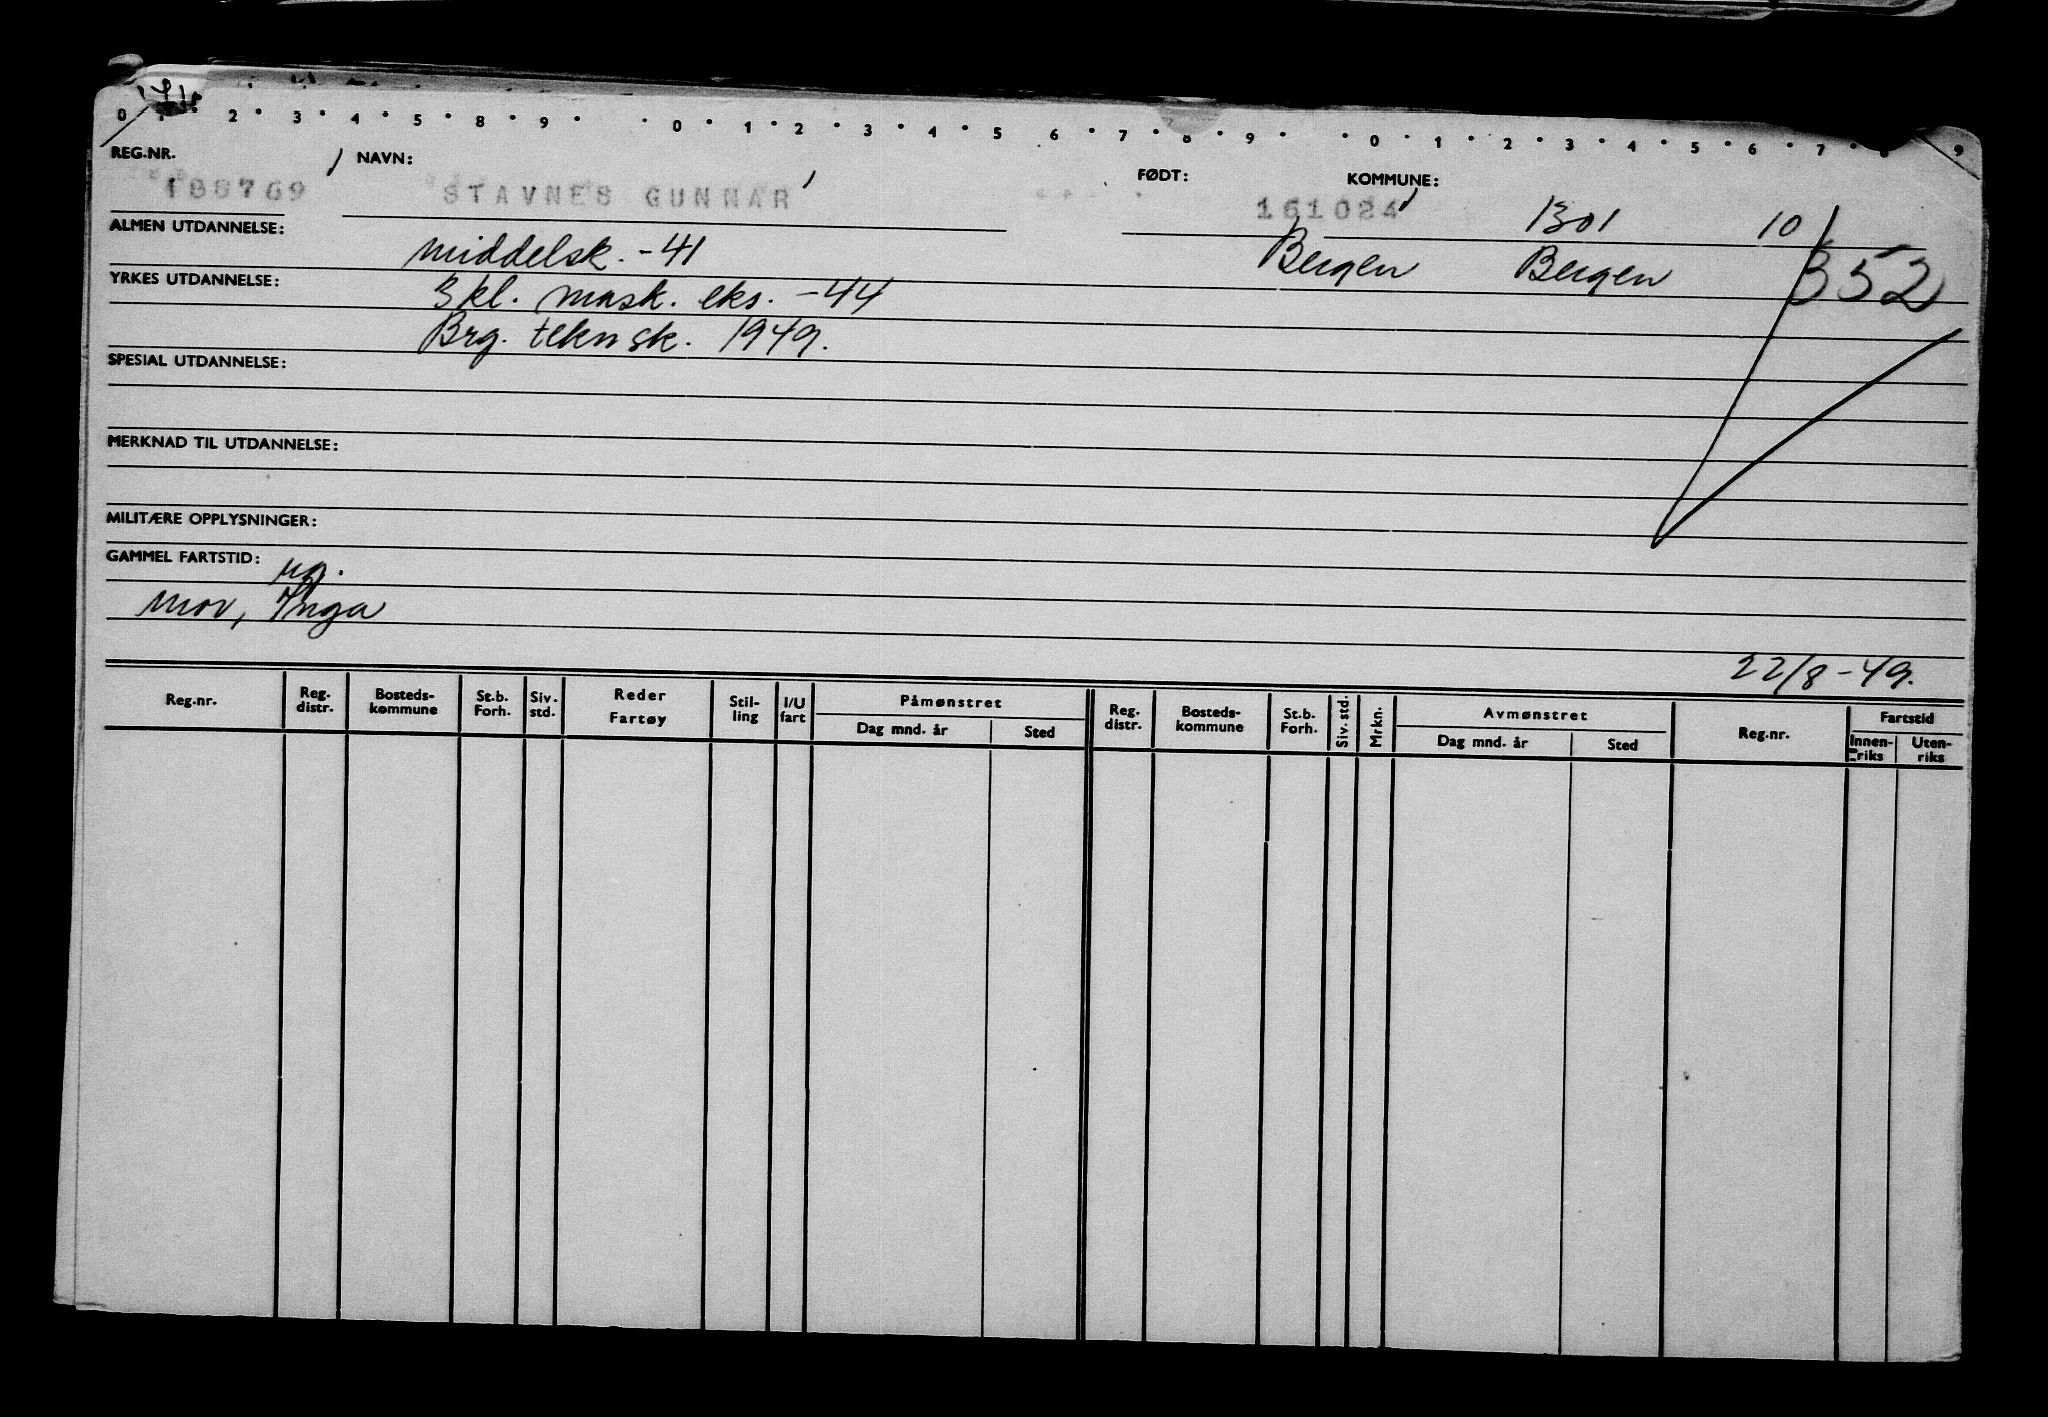 0 2 3 4 5 8 9 0 1 2 3 4 5 6 7 8 9 0 1 2 3 4 5 6 7 8 9
REG.NR. NAVN: FØDT: KOMMUNE:
188769 STAVNES GUNNAR 161024 1301 10
ALMEN UTDANNELSE: middelsk. -41 Bergen Bergen 352
YRKES UTDANNELSE: 3 kl. mask. eks. -44
Brg. teknsk. 1949.
SPESIAL UTDANNELSE:
MERKNAD TIL UTDANNELSE:
MILITÆRE OPPLYSNINGER:
GAMMEL FARTSTID:
ug.
mor, Inga
22/8-49.
Reg.nr. Reg. distr. Bosteds-kommune St.b. Forh. Siv. std. Reder Fartøy Stil-ling I/U fart Påmønstret Reg. distr. Bosteds-kommune St.b. Forh. Siv. std. Mrkn. Avmønstret Reg.nr. Fartstid
Dag mnd. år Sted Dag mnd. år Sted Innen-riks Uten-riks